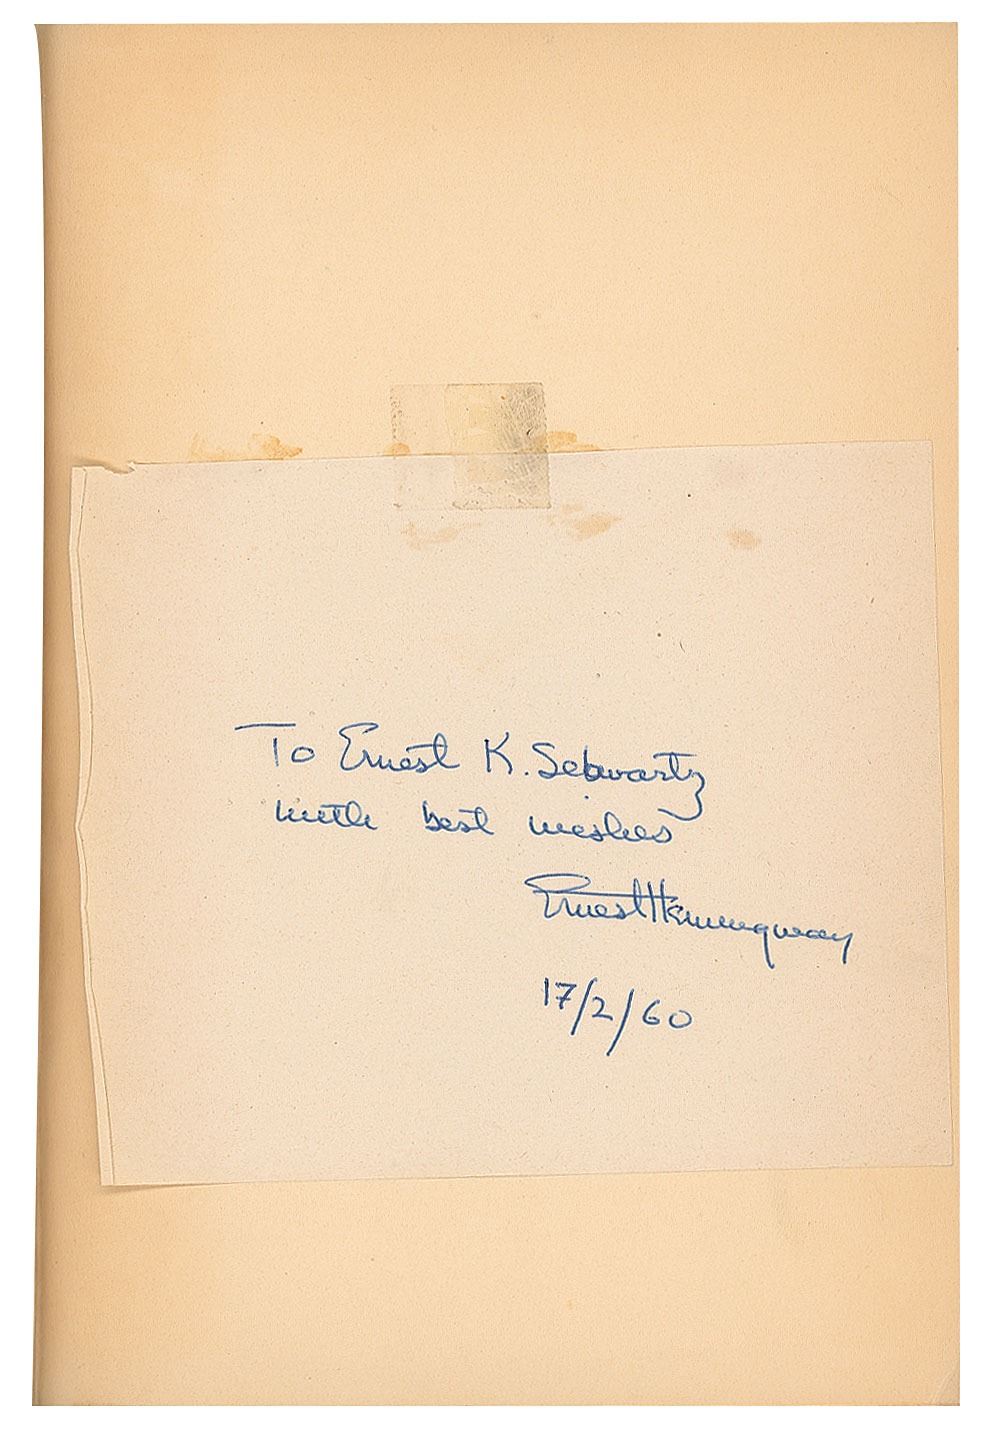 To Ernest K. Schwartz
with best wishes
Ernest Hemingway
17/2/60